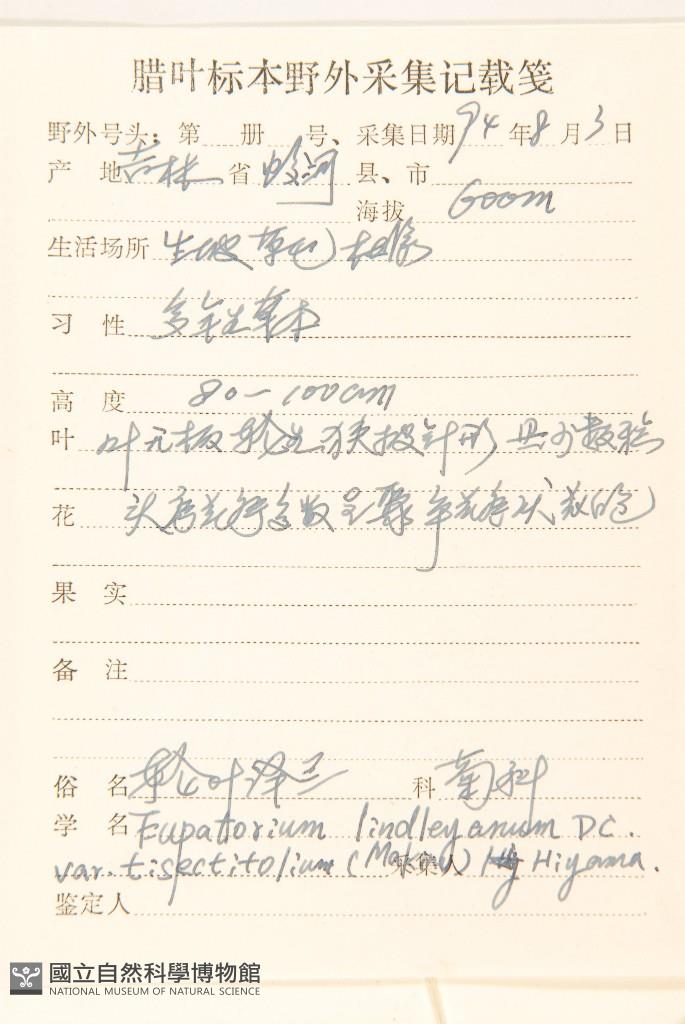 腊叶标本野外采集记载笺
野外号头: 第 册 号、采集日期 94 年 8 月 3 日
产 地 吉林 省 蛟河 县、市
海拔 600m
生活场所 生坡草地
习 性 多年生草本
高 度 80-100cm
叶 叶无柄轮生狭披针形
花 头序花序多数呈聚伞花序状
果 实
备 注
俗 名 轮叶泽兰 科 菊科
学 名 Eupatorium lindleyanum DC.
var. tisectitolium ( 采集人 Hiyama.
鉴定人
國立自然科學博物館
NATIONAL MUSEUM OF NATURAL SCIENCE